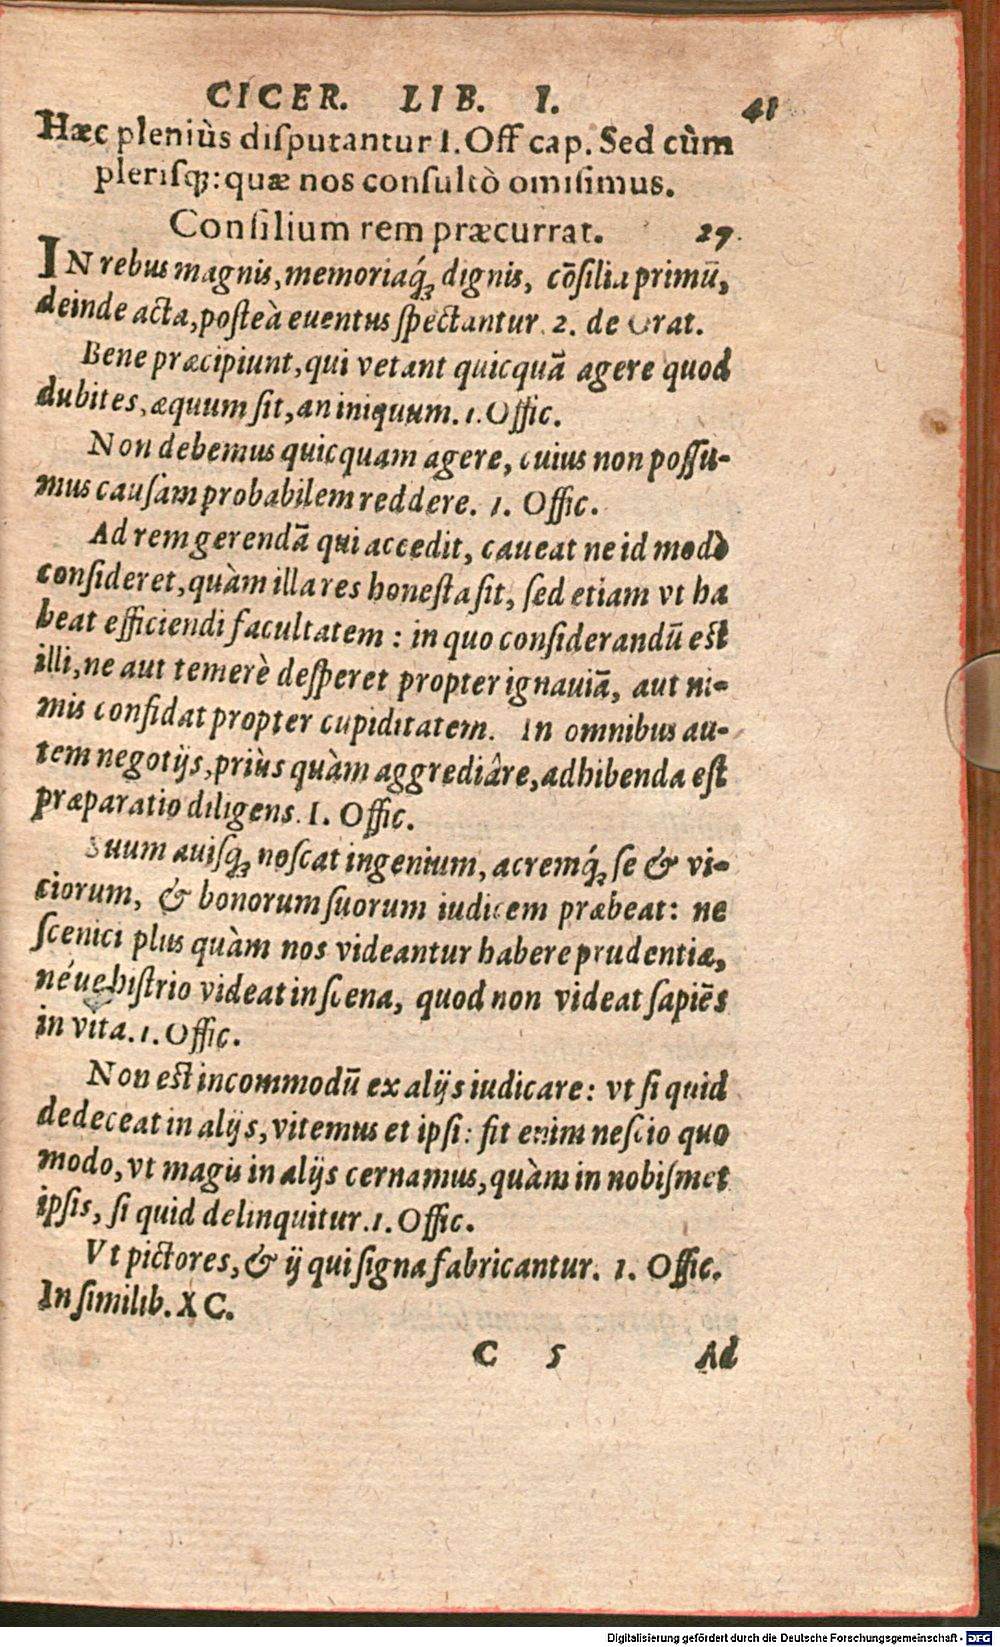 CICER. LIB. I. 41
Hæc pleniùs diſputantur I. Off cap. Sed cùm
pleriſq;: quæ nos conſultò omiſimus.
Conſilium rem præcurrat. 29.
IN rebus magnis, memoriaq́; dignis, cōſilia primū,
deinde acta, poſteà euentus ſpectantur. 2. de Orat.
Bene præcipiunt, qui vetant quicquā agere quod
dubites, æquum ſit, an iniquum. 1. Offic.
Non debemus quicquam agere, cuius non poſſu-
mus cauſam probabilem reddere. 1. Offic.
Ad rem gerendā qui accedit, caueat ne id modò
conſideret, quàm illa res honeſta ſit, ſed etiam vt ha
beat efficiendi facultatem : in quo conſiderandū eſt
illi, ne aut temerè deſperet propter ignauiā, aut ni-
mis confidat propter cupiditatem. In omnibus au-
tem negotijs, priùs quàm aggrediâre, adhibenda eſt
præparatio diligens. I. Offic.
Suum auiſq; noſcat ingenium, acremq́; ſe & vi-
ciorum, & bonorum ſuorum iudicem præbeat: ne
ſcenici plus quàm nos videantur habere prudentiæ,
néue hiſtrio videat in ſcena, quod non videat ſapiēs
in vita. 1. Offic.
Non eſt incommodū ex alijs iudicare: vt ſi quid
dedeceat in alijs, vitemus et ipſi: fit enim neſcio quo
modo, vt magis in alijs cernamus, quàm in nobiſmet
ipſis, ſi quid delinquitur. 1. Offic.
Vt pictores, & ij qui ſigna fabricantur. 1. Offic.
In ſimilib. XC.
C 5 Ad
Digitalisierung gefördert durch die Deutsche Forschungsgemeinschaft - DFG